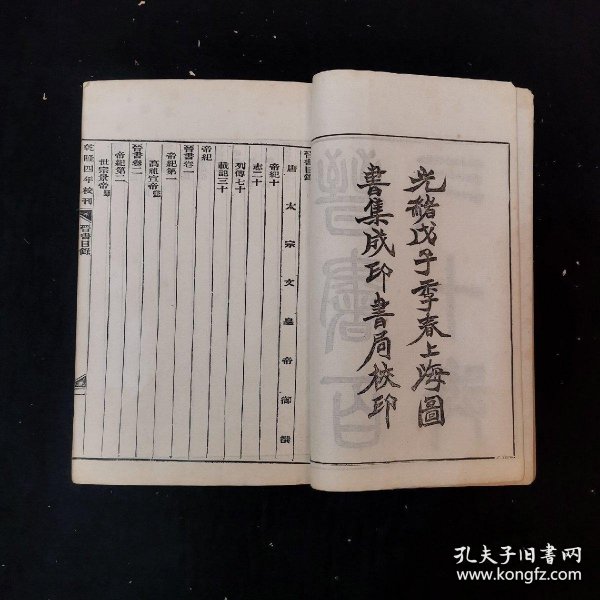 光緒戊子季春上海圖
書集成印書局校印
晉書目錄
唐太宗文皇帝御撰
帝紀十
志二十
列傳七十
載記三十
帝紀
晉書卷一
帝紀第一
高祖宣帝懿
晉書卷二
帝紀第二
世宗景帝
乾隆四年校刊
晉書目錄
孔夫子旧书网
www.kongfz.com